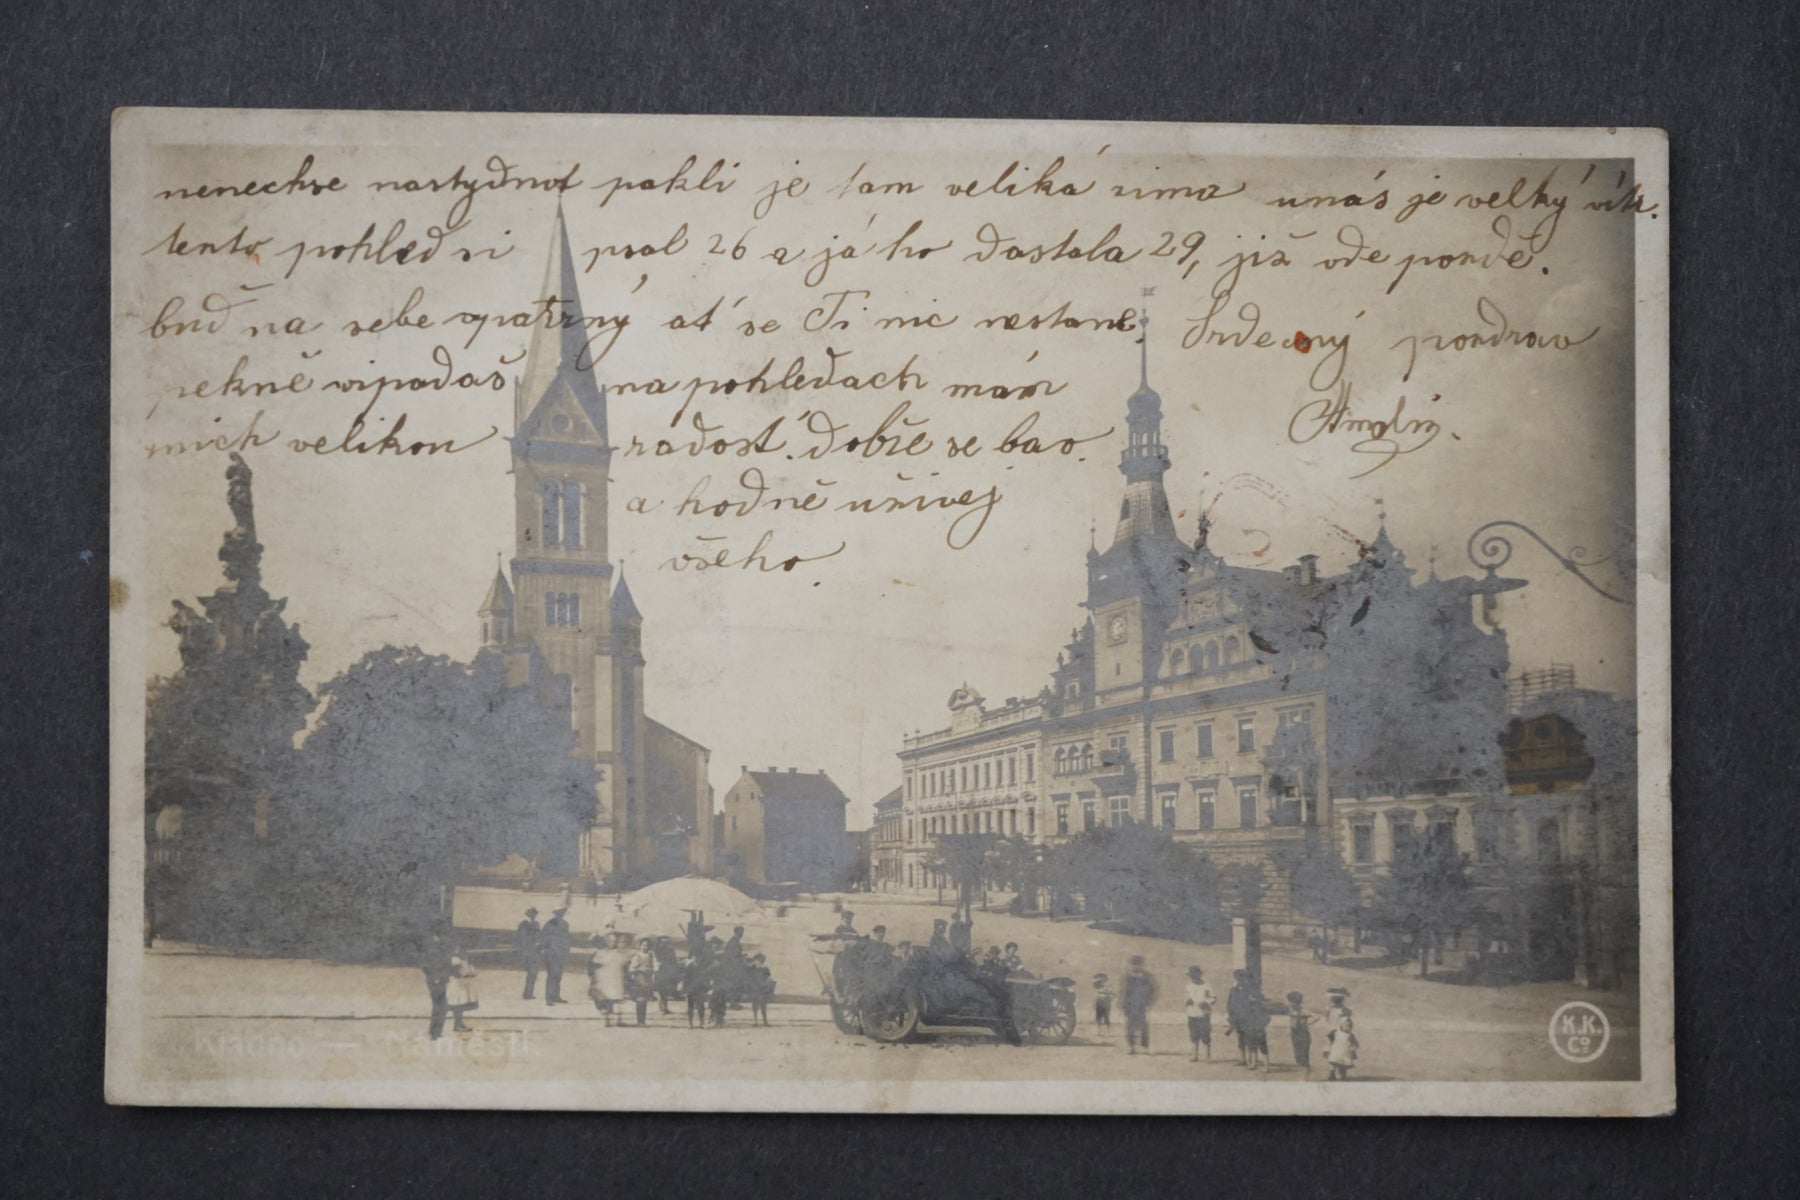 nenechse nastyďnot pakli je tam veliká zima unás je velký vítr.
tento pohleď si psal 26 a já ho ďastala 29, již ode pozďě.
buď na sebe opatrný ať se Ti nic nestane. Srdečný pozdrav
pekně vipadaš na pohleďach mám
mich velikou raďost. ďobře se bav.
a hoďně uživej
všeho.
Kladno — Náměstí.
K.K.
Co